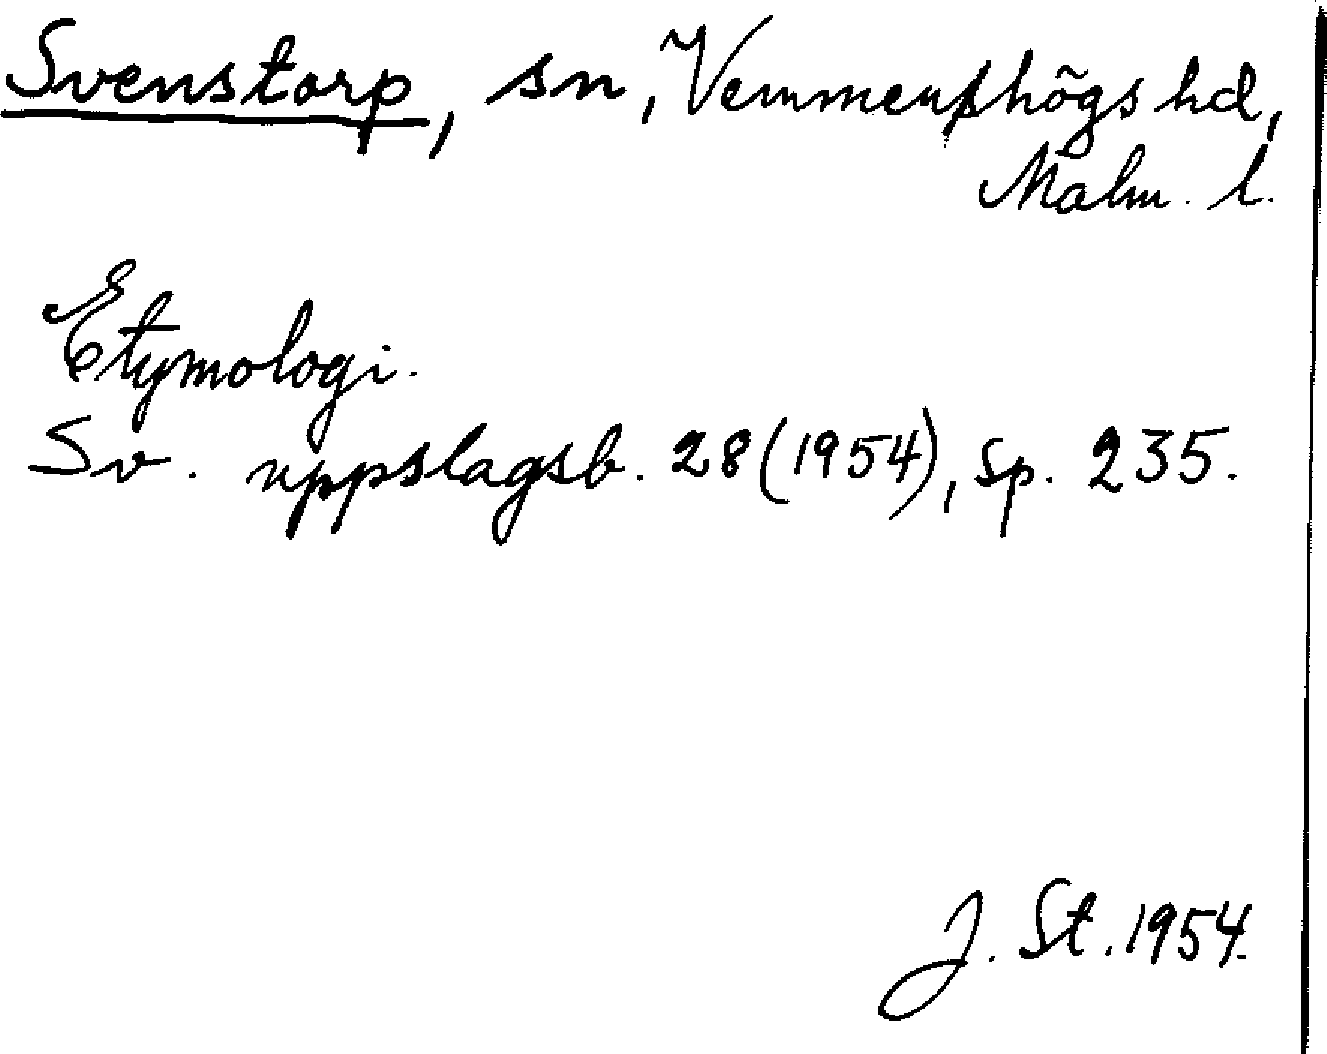 Svenstorp, sn, Vemmenhögs hd,
Malm. l.
Etymologi.
Sv. uppslagsb. 28 (1954), sp. 235.
J. St. 1954.